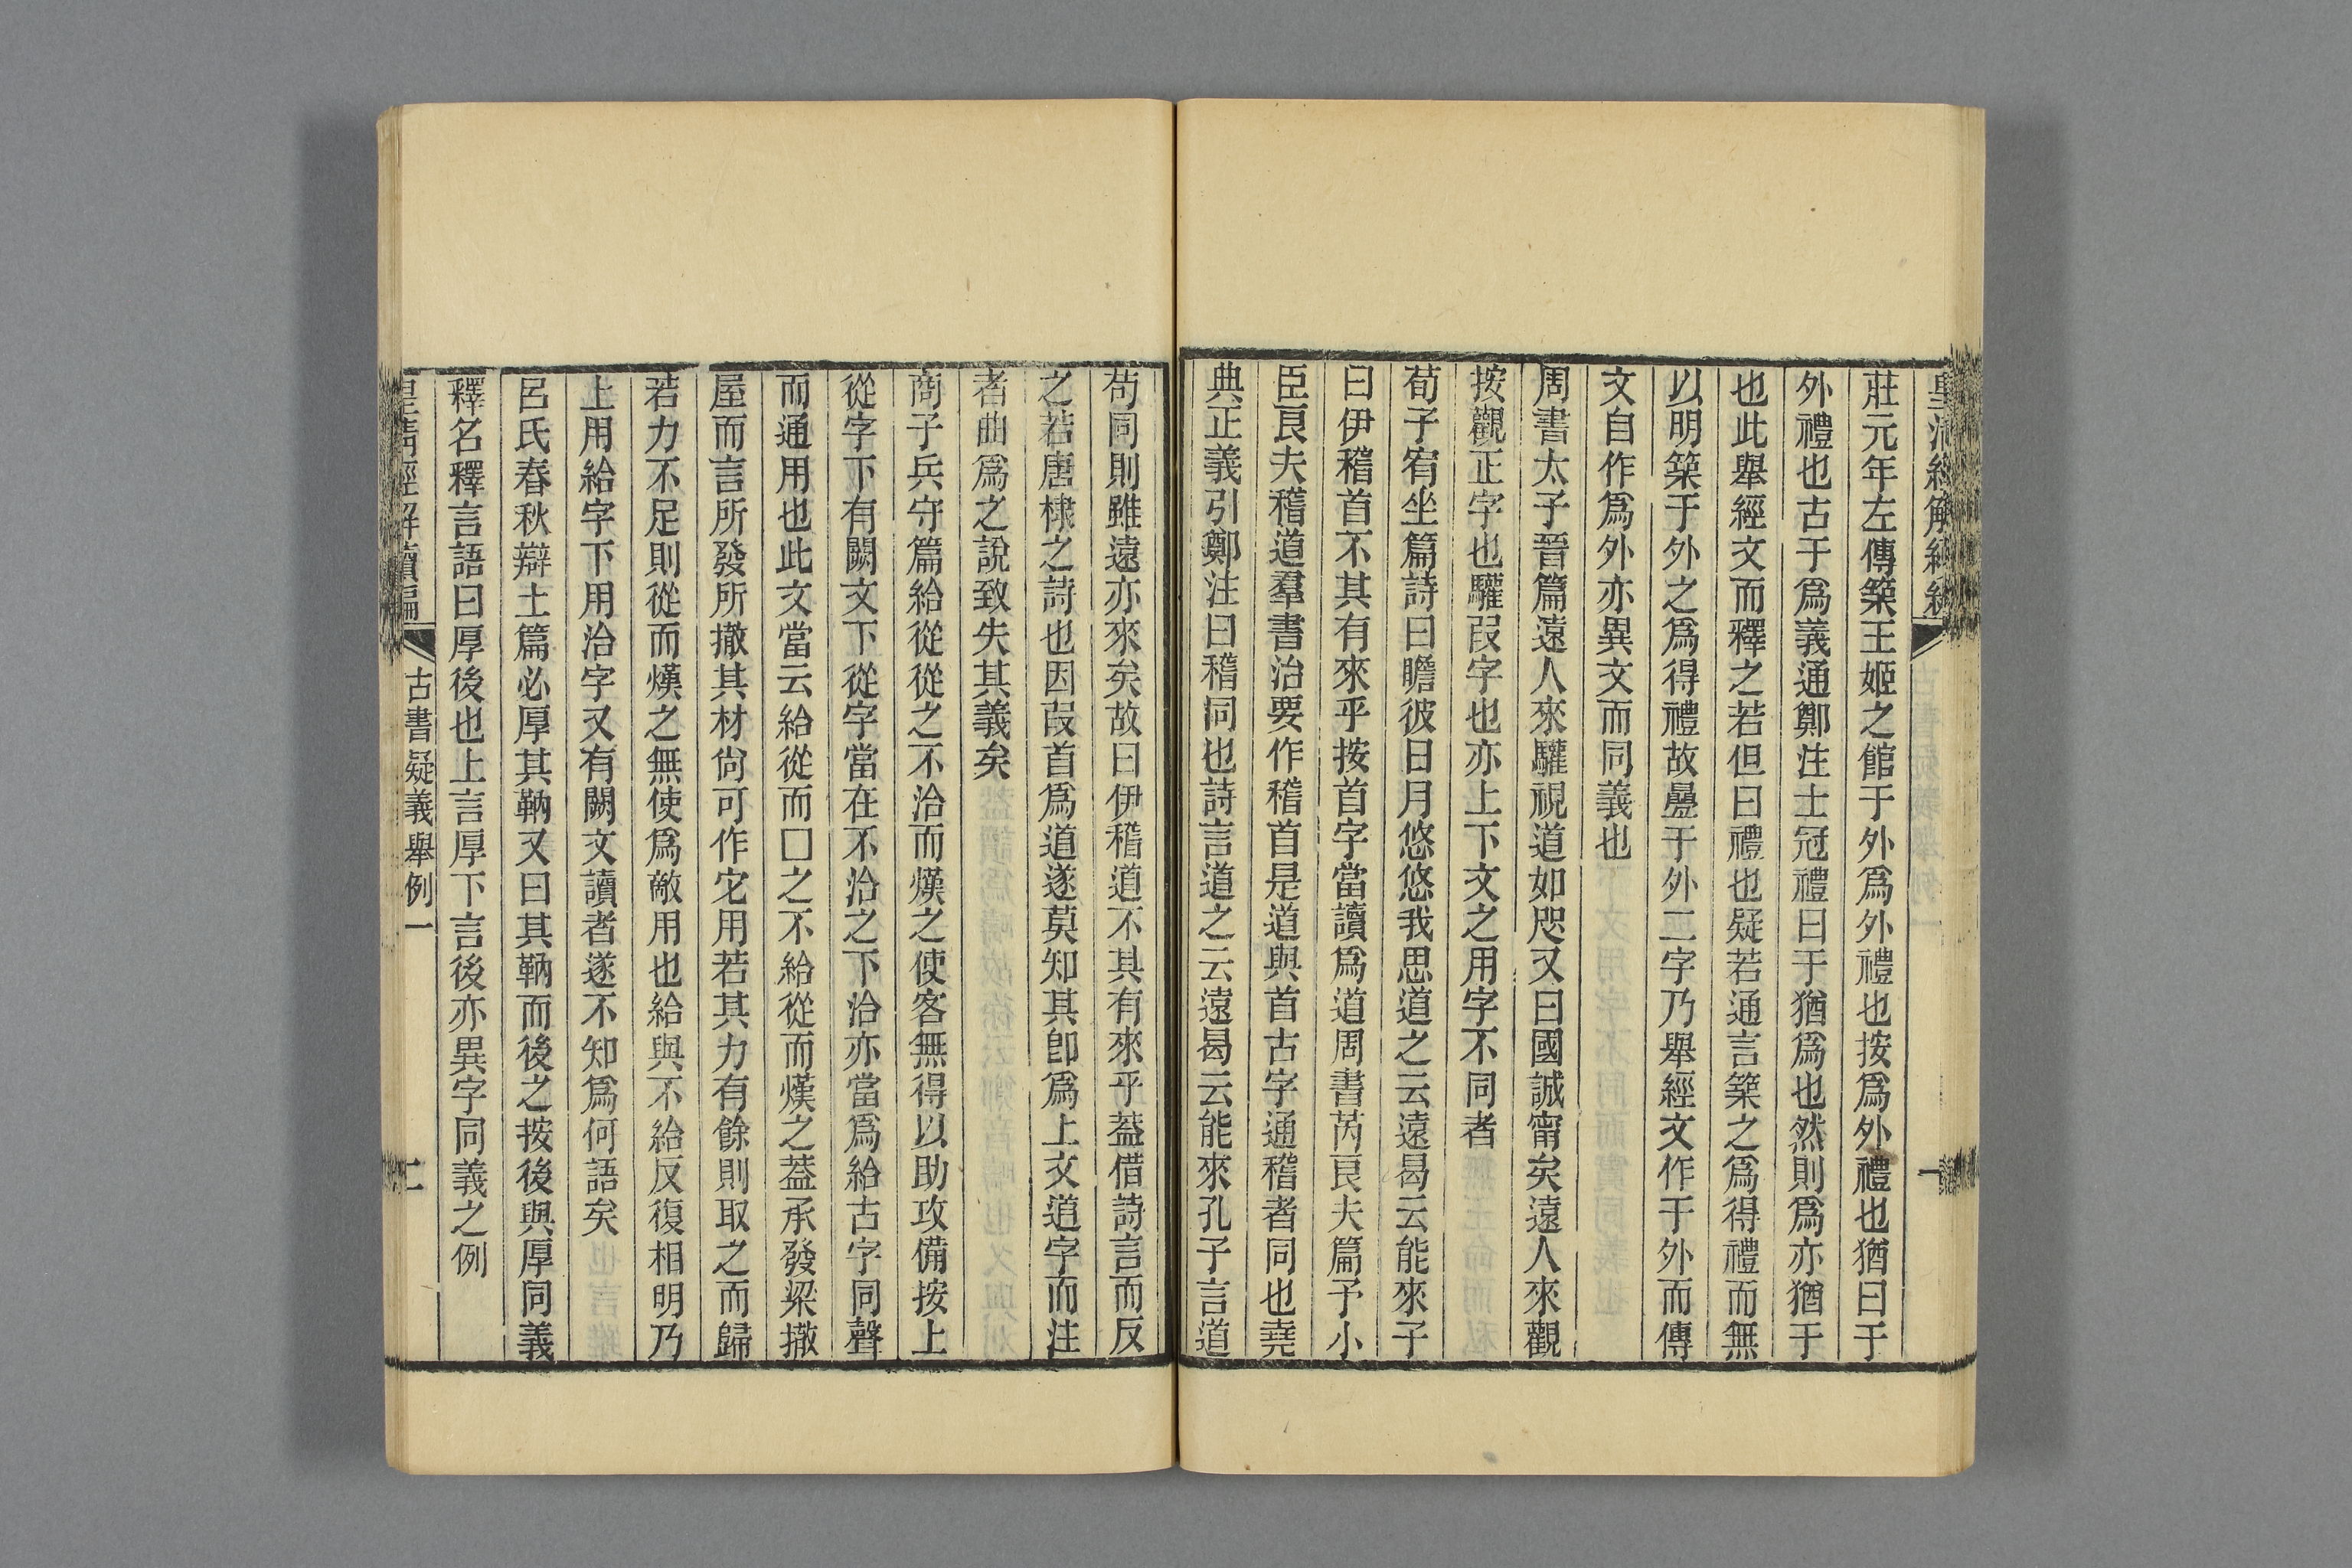 莊元年左傳築王姬之館于外爲外禮也按爲外禮也猶曰于
外禮也古于爲義通鄭注士冠禮曰于猶爲也然則爲亦猶于
也此舉經文而釋之若但曰禮也疑若通言築之爲得禮而無
以明築于外之爲得禮故疊于外二字乃舉經文作于外而傳
文自作爲外亦異文而同義也
周書太子晉篇遠人來驩視道如咫又曰國誠甯矣遠人來觀
按觀正字也驩叚字也亦上下文之用字不同者
荀子宥坐篇詩曰瞻彼日月悠悠我思道之云遠曷云能來子
曰伊稽首不其有來乎按首字當讀爲道周書芮良夫篇予小
臣良夫稽道羣書治要作稽首是道與首古字通稽者同也堯
典正義引鄭注曰稽同也詩言道之云遠曷云能來孔子言道
苟同則雖遠亦來矣故曰伊稽道不其有來乎蓋借詩言而反
之若唐棣之詩也因叚首爲道遂莫知其卽爲上文道字而注
者曲爲之說致失其義矣
商子兵守篇給從從之不洽而熯之使客無得以助攻備按上
從字下有闕文下從字當在不洽之下洽亦當爲給古字同聲
而通用也此文當云給從而□之不給從而熯之蓋承發梁撤
屋而言所發所撤其材尙可作它用若其力有餘則取之而歸
若力不足則從而熯之無使爲敵用也給與不給反復相明乃
上用給字下用洽字又有闕文讀者遂不知爲何語矣
呂氏春秋辯土篇必厚其靹又曰其靹而後之按後與厚同義
釋名釋言語曰厚後也上言厚下言後亦異字同義之例
皇清經解續編
古書疑義舉例一
二